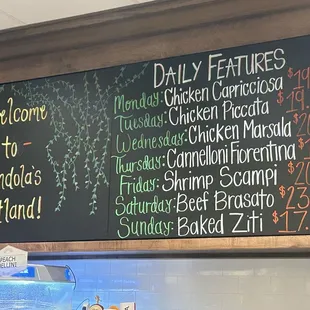 elcome
to
ndola's
tland!
DAILY FEATURES
Monday: Chicken Capricciosa $19
Tuesday: Chicken Piccata $19
Wednesday: Chicken Marsala
Thursday: Cannelloni Fiorentina
Friday: Shrimp Scampi
Saturday: Beef Brasato $23
Sunday: Baked Ziti $17.
PEACH
BELLINI